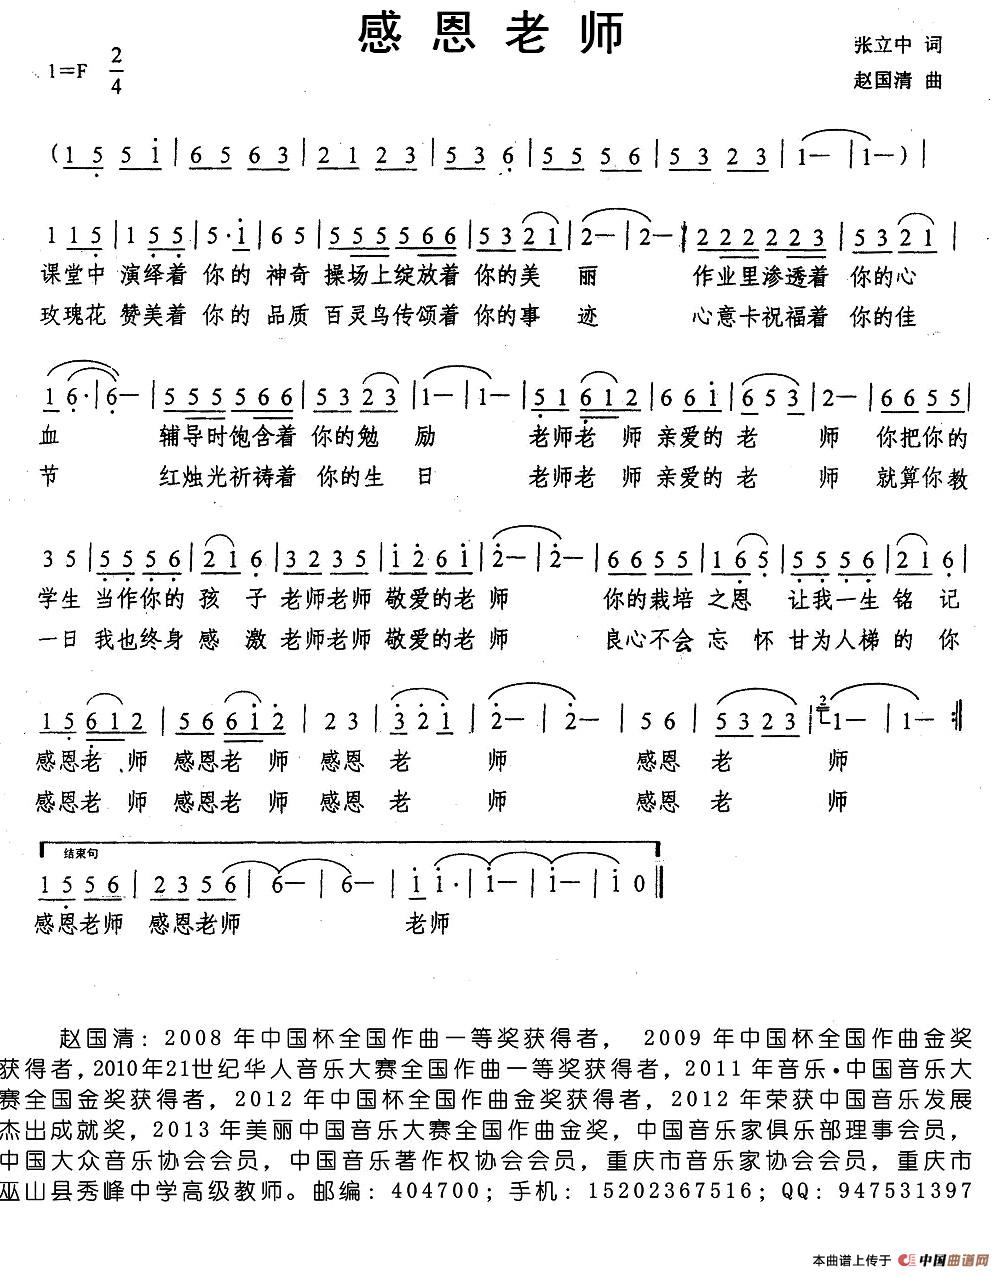 感恩老师
张立中 词
1=F 2/4
赵国清 曲
(1 5 5 i | 6 5 6 3 | 2 1 2 3 | 5 3 6 | 5 5 5 6 | 5 3 2 3 | 1— | 1—) |
1 1 5 | 1 5 5 | 5·i | 6 5 | 5 5 5 5 6 6 | 5 3 2 1 | 2— | 2— | 2 2 2 2 2 3 | 5 3 2 1 |
课堂中 演绎着 你的 神奇 操场上绽放着 你的美 丽 作业里渗透着 你的心
玫瑰花 赞美着 你的 品质 百灵鸟传颂着 你的事 迹 心意卡祝福着 你的佳
1 6· | 6— | 5 5 5 5 6 6 | 5 3 2 3 | 1— | 1— | 5 1 6 1 2 | 6 6 i | 6 5 3 | 2— | 6 6 5 5 |
血 辅导时饱含着 你的勉 励 老师老 师 亲爱的 老 师 你把你的
节 红烛光祈祷着 你的生 日 老师老 师 亲爱的 老 师 就算你教
3 5 | 5 5 5 6 | 2 1 6 | 3 2 3 5 | i 2 6 i | 2— | 2— | 6 6 5 5 | 1 6 5 | 5 5 5 6 | 2 1 6 |
学生 当作你的 孩 子 老师老师 敬爱的老 师 你的栽培 之恩 让我一生 铭 记
一日 我也终身 感 激 老师老师 敬爱的老 师 良心不会 忘 怀 甘为人梯 的 你
1 5 6 1 2 | 5 6 6 i 2 | 2 3 | 3 2 i | 2— | 2— | 5 6 | 5 3 2 3 | 2 1— | 1— :||
感恩老 师 感恩老 师 感恩 老 师 感恩 老 师
感恩老 师 感恩老 师 感恩 老 师 感恩 老 师
结束句
1 5 5 6 | 2 3 5 6 | 6— | 6— | i i· | i— | i— | i 0 ||
感恩老师 感恩老师 老师
赵国清：2008年中国杯全国作曲一等奖获得者， 2009年中国杯全国作曲金奖
获得者，2010年21世纪华人音乐大赛全国作曲一等奖获得者，2011年音乐·中国音乐大
赛全国金奖获得者，2012年中国杯全国作曲金奖获得者，2012年荣获中国音乐发展
杰出成就奖，2013年美丽中国音乐大赛全国作曲金奖，中国音乐家俱乐部理事会员，
中国大众音乐协会会员，中国音乐著作权协会会员，重庆市音乐家协会会员，重庆市
巫山县秀峰中学高级教师。邮编：404700；手机：15202367516；QQ：947531397
本曲谱上传于 中国曲谱网